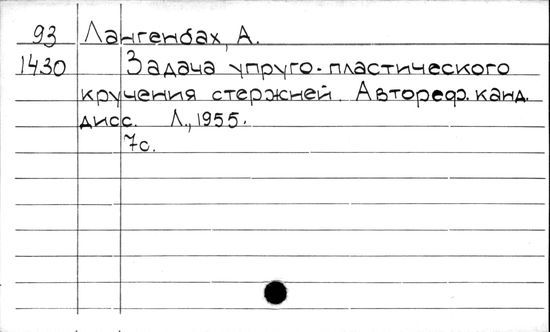 93 Лангенбах, А.
1430 Задача упруго-пластического
кручения стержней. Автореф. канд.
дисс. Л., 1955.
7с.